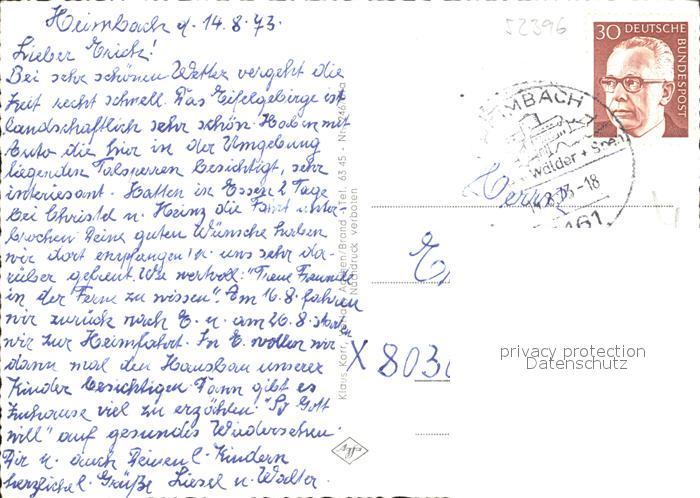 Heimbach d. 14.8.73.
Lieber Erich!
Bei sehr schönen Wetter vergeht die
Zeit recht schnell. Das Eifelgebirge ist
landschaftlich sehr schön. Haben mit
Auto die hier in der Umgebung
liegenden Talsperren besichtigt, sehr
interessant. Hatten in Essen 2 Tage
bei Christel u. Heinz die Fahrt unter-
brochen. Deine guten Wünsche haben
wir dort empfangen u. uns sehr da-
rüber gefreut. Wie wertvoll: "Treue Freunde
in der Ferne zu wissen". Am 16.8. fahren
wir zurück nach E. u. am 20.8. starten
wir zur Heimfahrt. In E. wollen wir
dann mal den Hausbau unserer
Kinder besichtigen. Dann gibt es
Zuhause viel zu erzählen. "So Gott
will" auf gesundes Wiedersehen.
Dir u. auch Deinen l. Kindern
herzliche Grüße Liesel u. Walter.
52396
30 DEUTSCHE
BUNDESPOST
HEIMBACH
Wälder + Seen
14.8.73-18
5161
Herrn
X 8030
Klaus Korr, Aachen/Brand · Tel. 63 45 · Nr.
Nachdruck verboten
privacy protection
Datenschutz